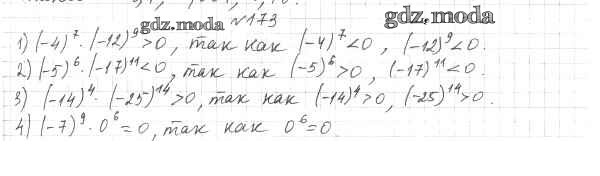 gdz.moda
№173
gdz.moda
1) (-4)⁷ · (-12)⁹ > 0, так как (-4)⁷ < 0, (-12)⁹ < 0.
2) (-5)⁶ · (-17)¹¹ < 0, так как (-5)⁶ > 0, (-17)¹¹ < 0.
3) (-14)⁴ · (-25)¹⁴ > 0, так как (-14)⁴ > 0, (-25)¹⁴ > 0.
4) (-7)⁹ · 0⁶ = 0, так как 0⁶ = 0.